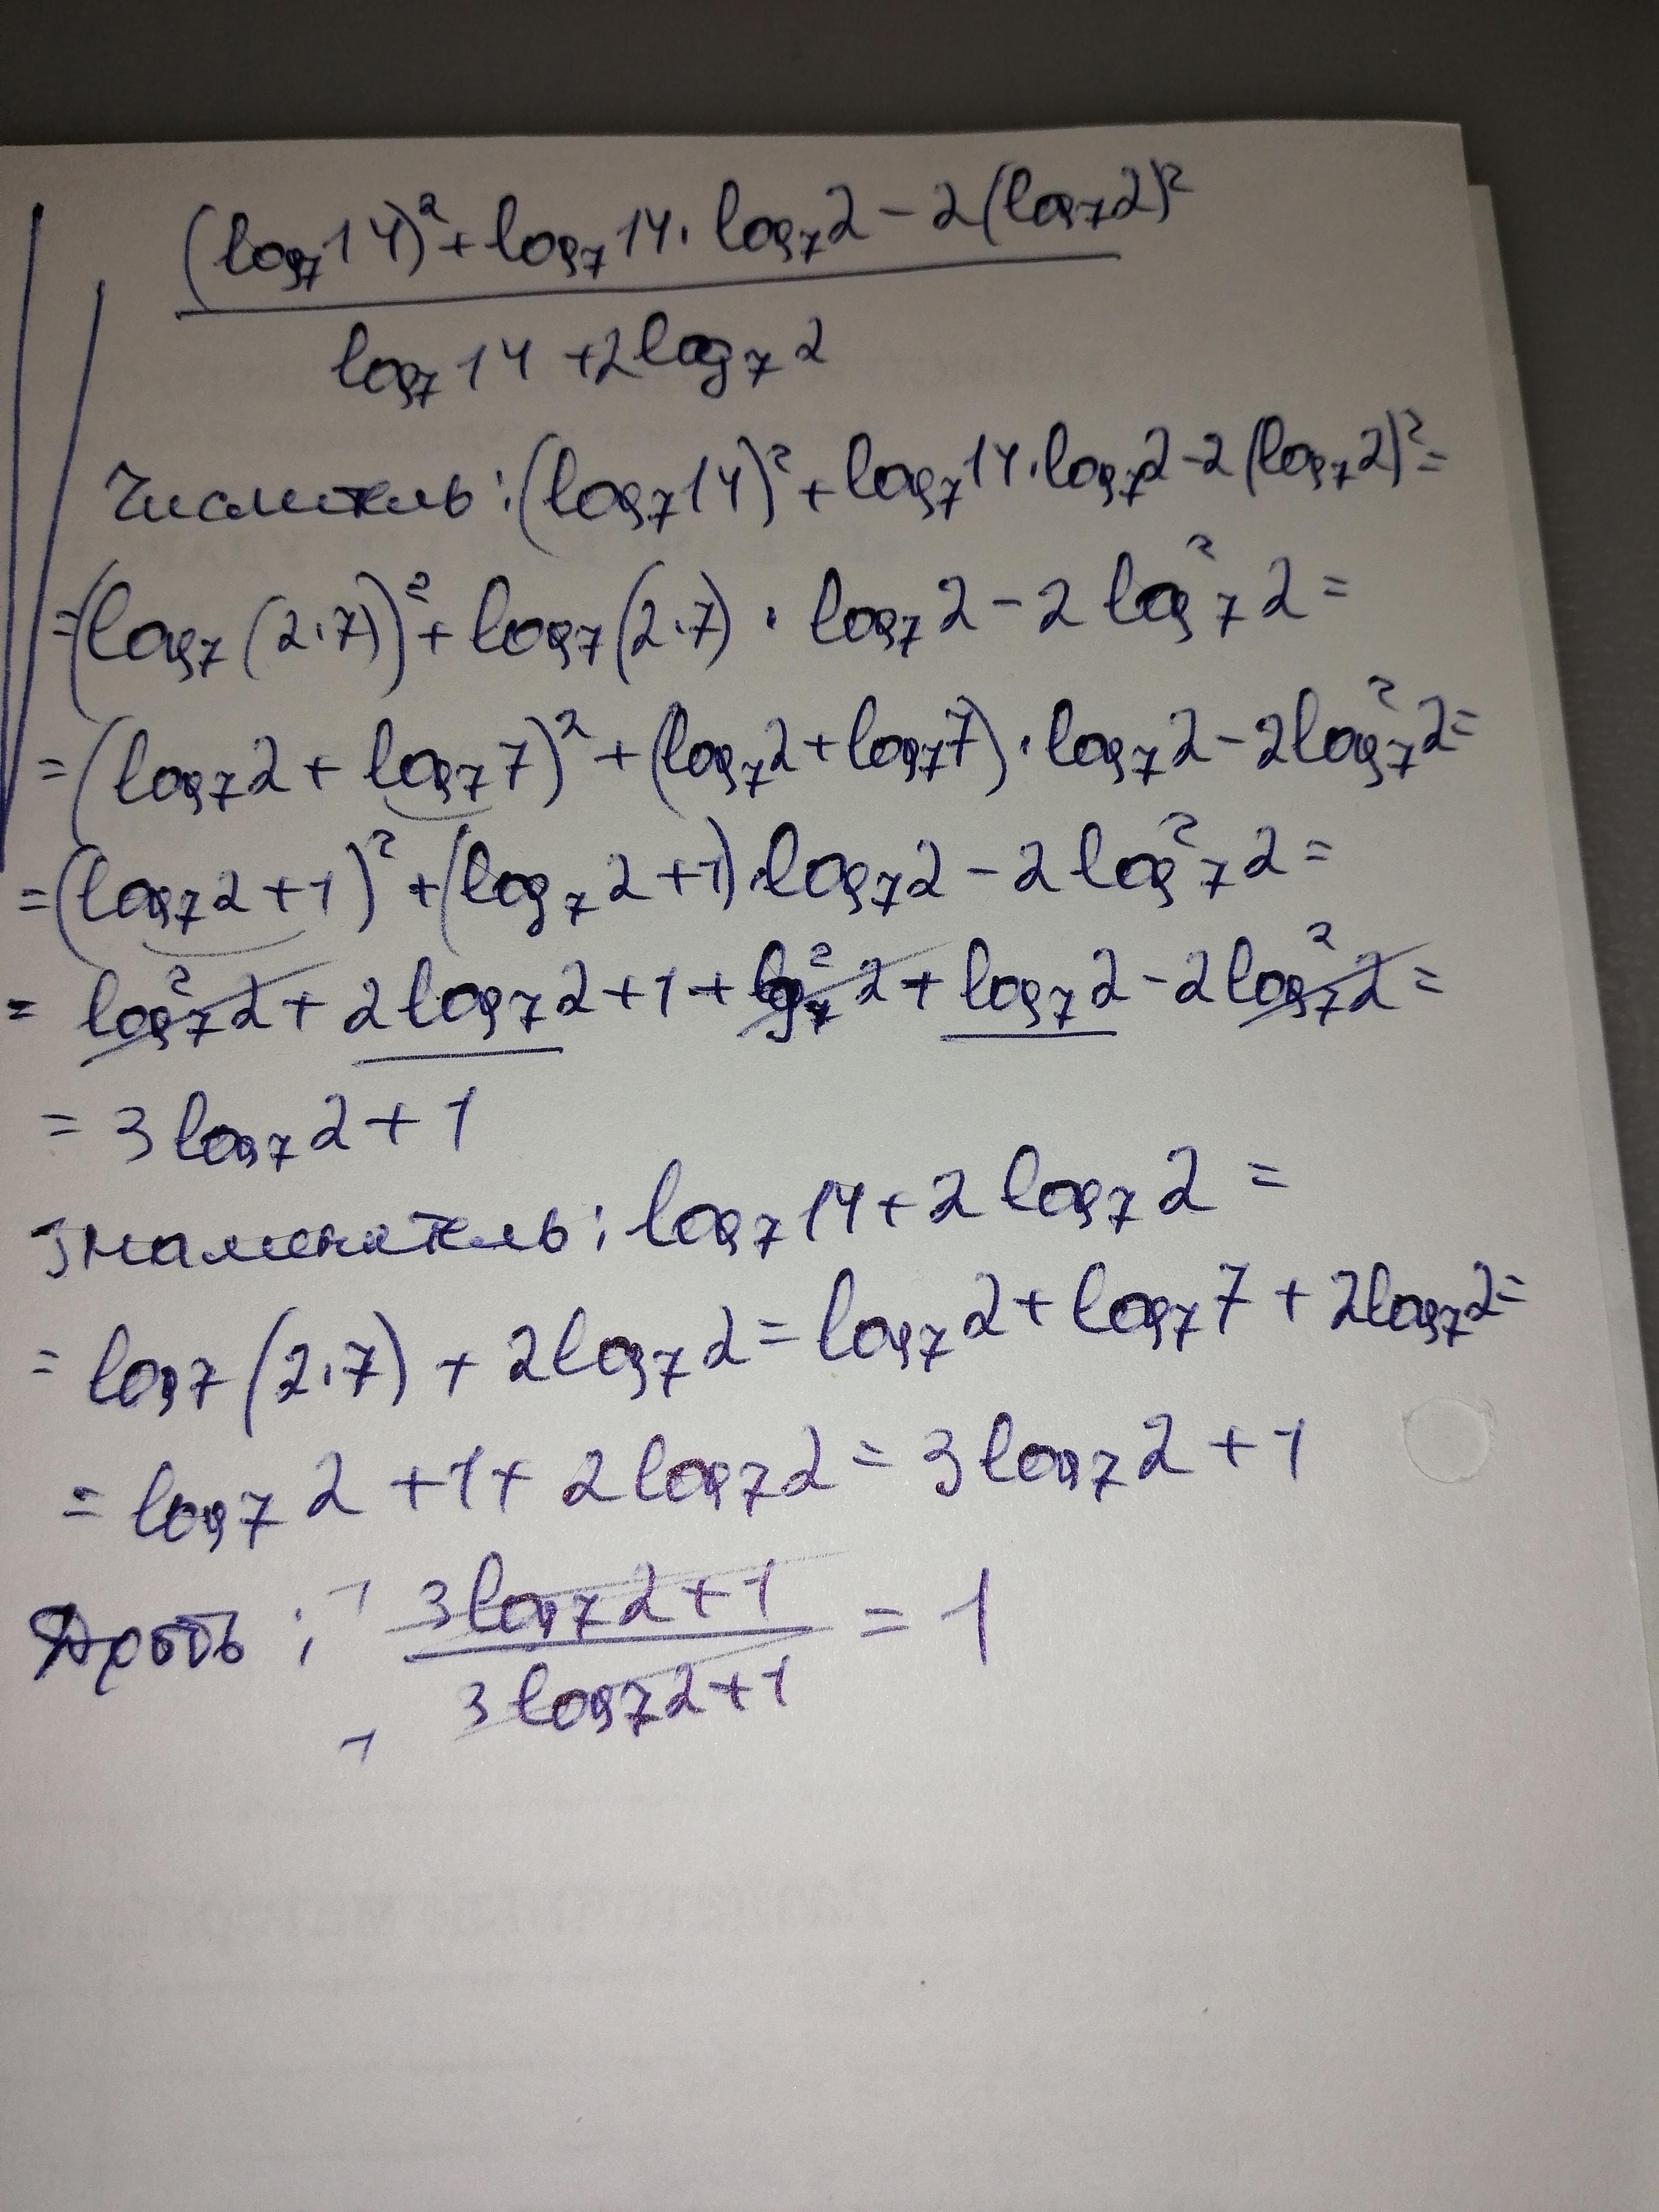 (log₇14)² + log₇14 · log₇2 - 2(log₇2)²
log₇14 + 2log₇2
Числитель: (log₇14)² + log₇14 · log₇2 - 2(log₇2)² =
= (log₇(2·7))² + log₇(2·7) · log₇2 - 2log²₇2 =
= (log₇2 + log₇7)² + (log₇2 + log₇7) · log₇2 - 2log²₇2 =
= (log₇2 + 1)² + (log₇2 + 1) · log₇2 - 2log²₇2 =
= log²₇2 + 2log₇2 + 1 + log²₇2 + log₇2 - 2log²₇2 =
= 3log₇2 + 1
Знаменатель: log₇14 + 2log₇2 =
= log₇(2·7) + 2log₇2 = log₇2 + log₇7 + 2log₇2 =
= log₇2 + 1 + 2log₇2 = 3log₇2 + 1
1 3log₇2 + 1
Дробь: = 1
1 3log₇2 + 1